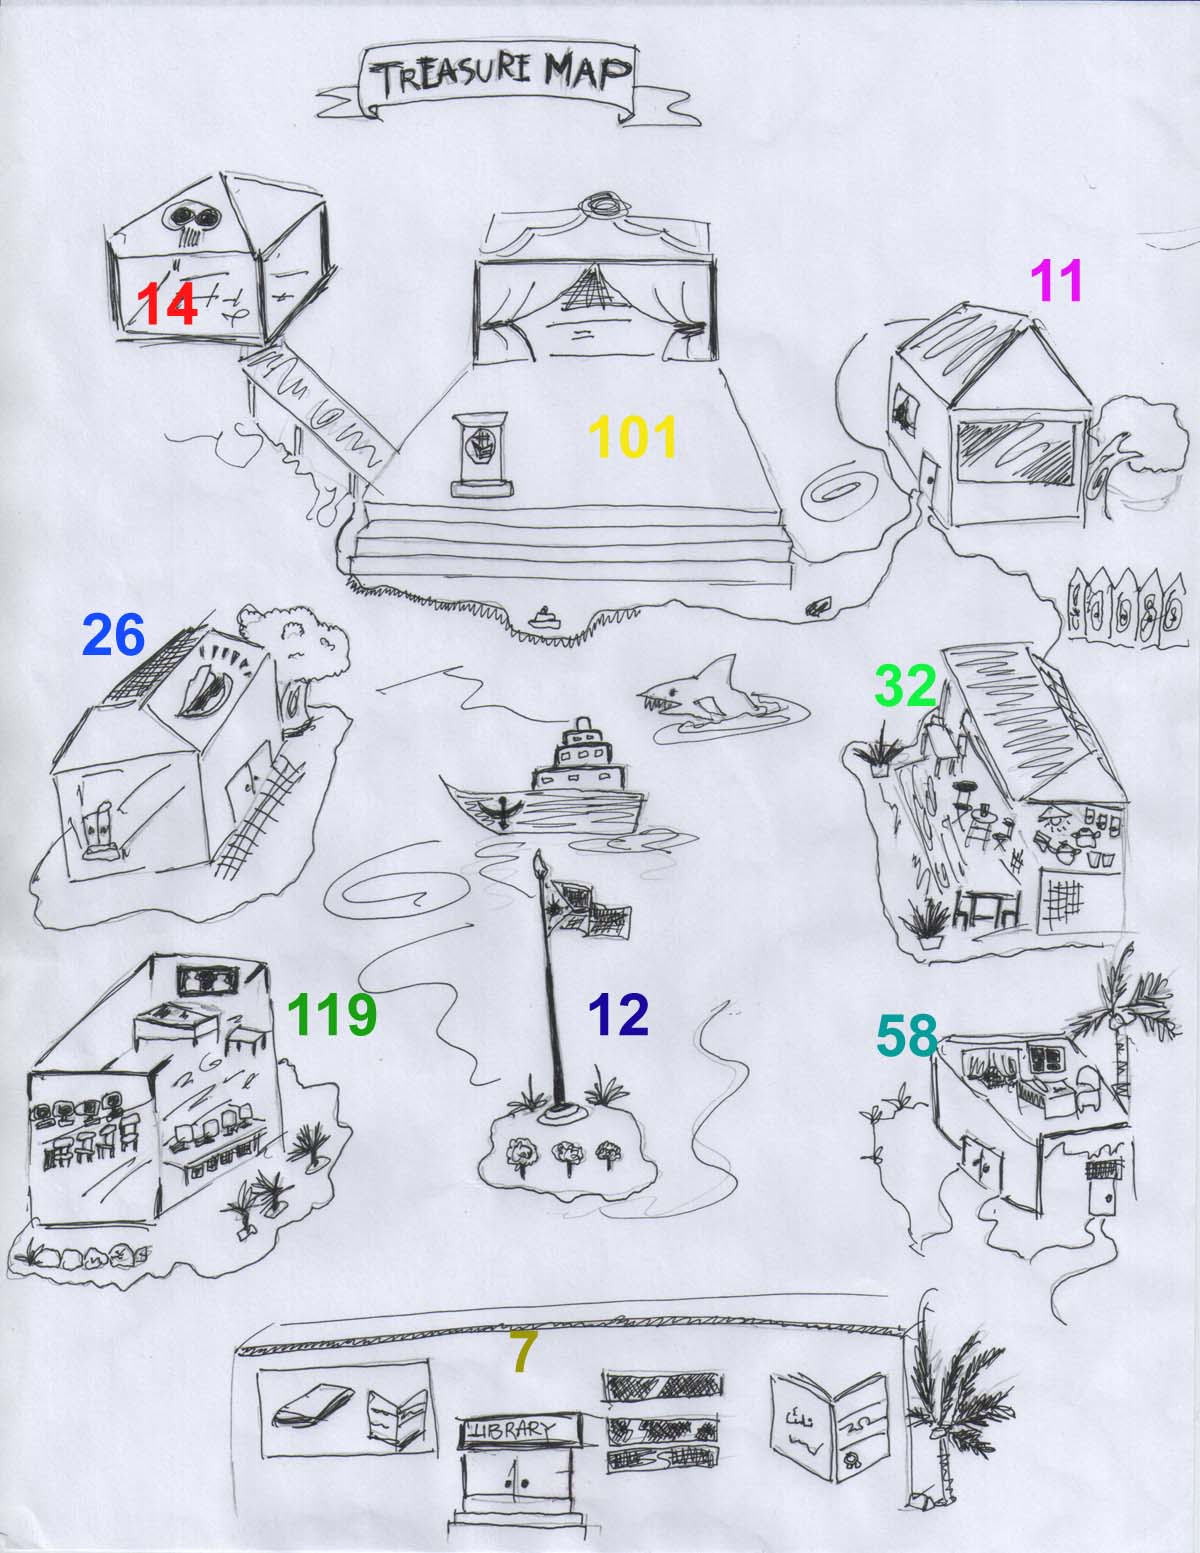 TREASURE MAP
11
14
101
26
32
119
12
58
7
LIBRARY